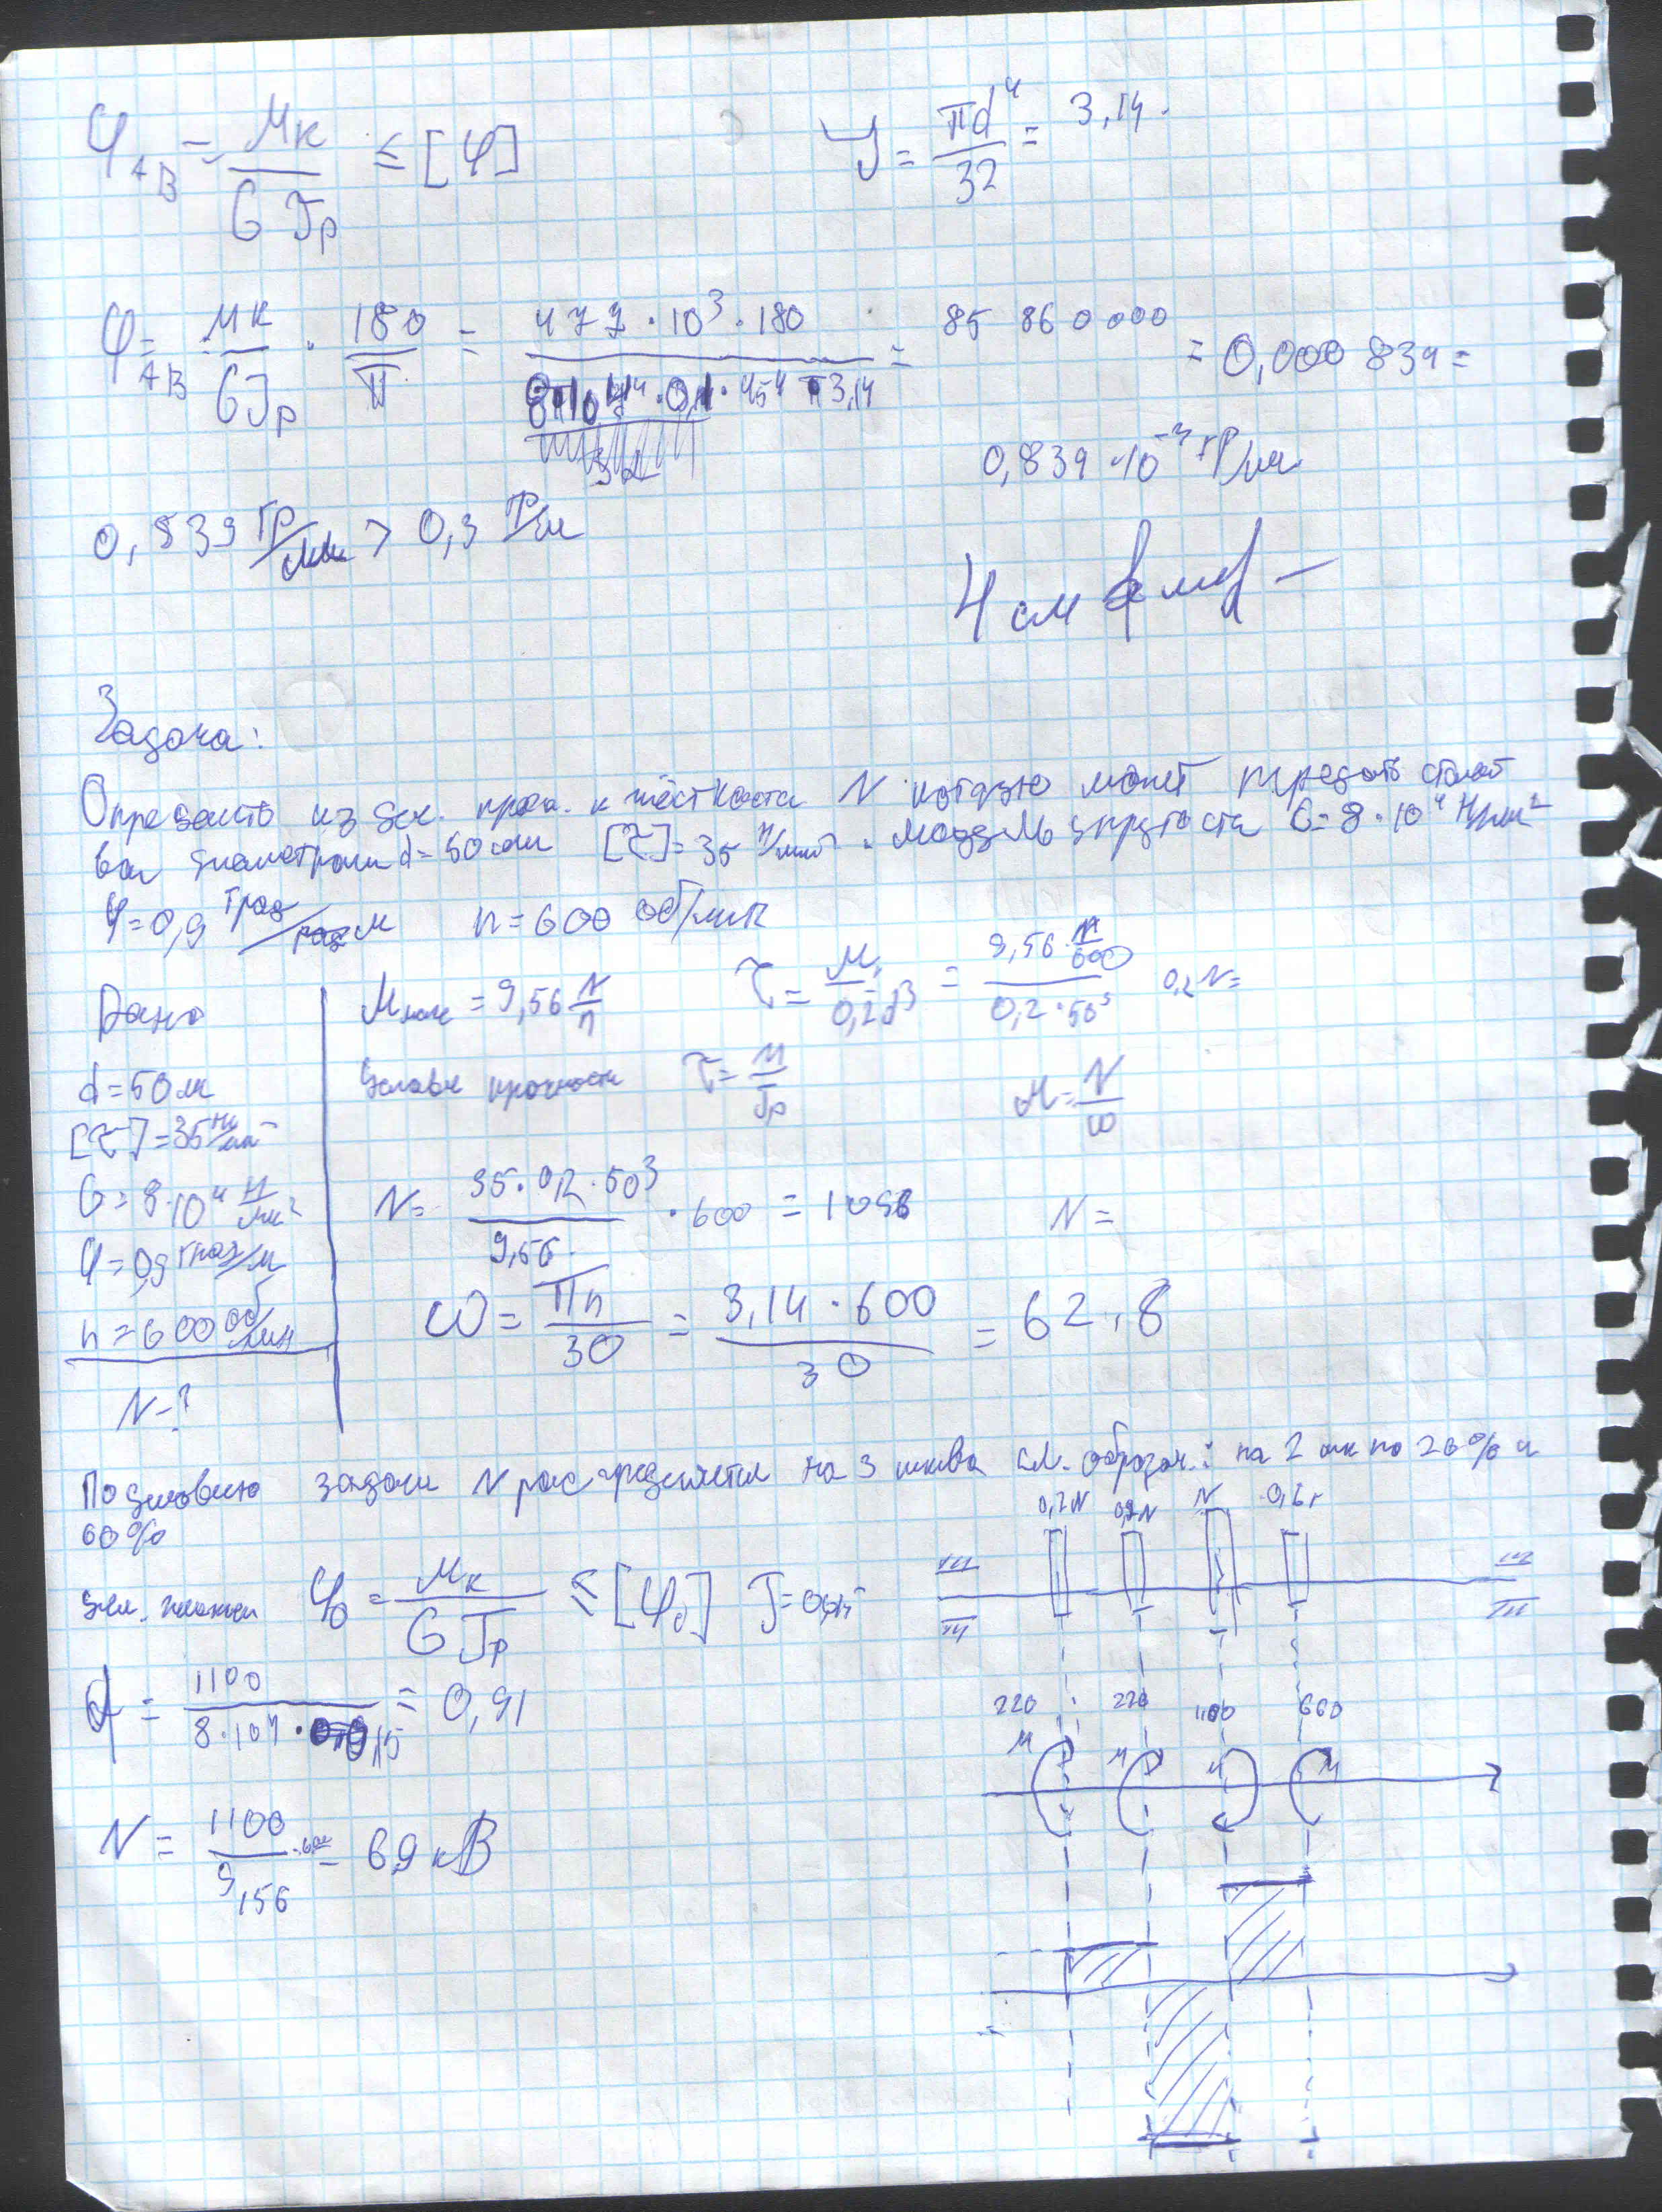 φAB = Mк / G Jp ≤ [φ]
J = πd⁴ / 32 = 3,14 ·
φAB = Mк / GJp · 180 / π = 477 · 10³ · 180 / 8·10⁴ · 0,1 · 45⁴ · 3,14 = 85 860 000 = 0,000 839 =
0,839 · 10⁻³ гр/мм
0,839 гр/мм > 0,3 гр/м
4 см
Задача:
Определить из усл. проч. и жёсткости N которую может передать стальной
вал диаметром d = 50 мм [τ] = 35 Н/мм² . модуль упругости G = 8 · 10⁴ Н/мм²
φ = 0,9 град/м n = 600 об/мин
Дано
d = 50 м
[τ] = 35 Н/мм²
G = 8·10⁴ Н/мм²
φ = 0,9 град/м
n = 600 об/мин
N - ?
M = 9,56 N/n
τ = M / 0,2d³ = 9,56 · N/600 / 0,2 · 50³ 0,2 N =
Условие прочности τ = M / Jp
M = N / ω
N = 35 · 0,2 · 50³ / 9,56 · 600 = 1098
N =
ω = πn / 30 = 3,14 · 600 / 30 = 62,8
По условию задачи N распределяется на 3 шкива сл. образом: на 2 шк по 20% и
60%
0,2N 0,2N N 0,6
φ0 = Mк / G Jp ≤ [φ0]
= 1100 / 8·10⁴ · = 0,91
220 220 1100 660
M M M M
N = 1100 / 9,56 · 600 = 69 кВ